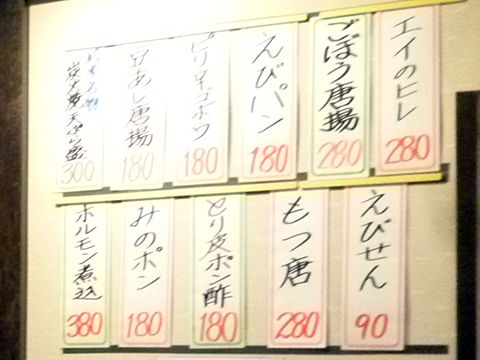 エイのヒレ
280
ごぼう唐揚
280
えびパン
180
ピリ辛ゴボウ
180
豆あじ唐揚
180
天ぷら盛
300
えびせん
90
もつ唐
280
とり皮ポン酢
180
みのポン
180
ホルモン煮込
380